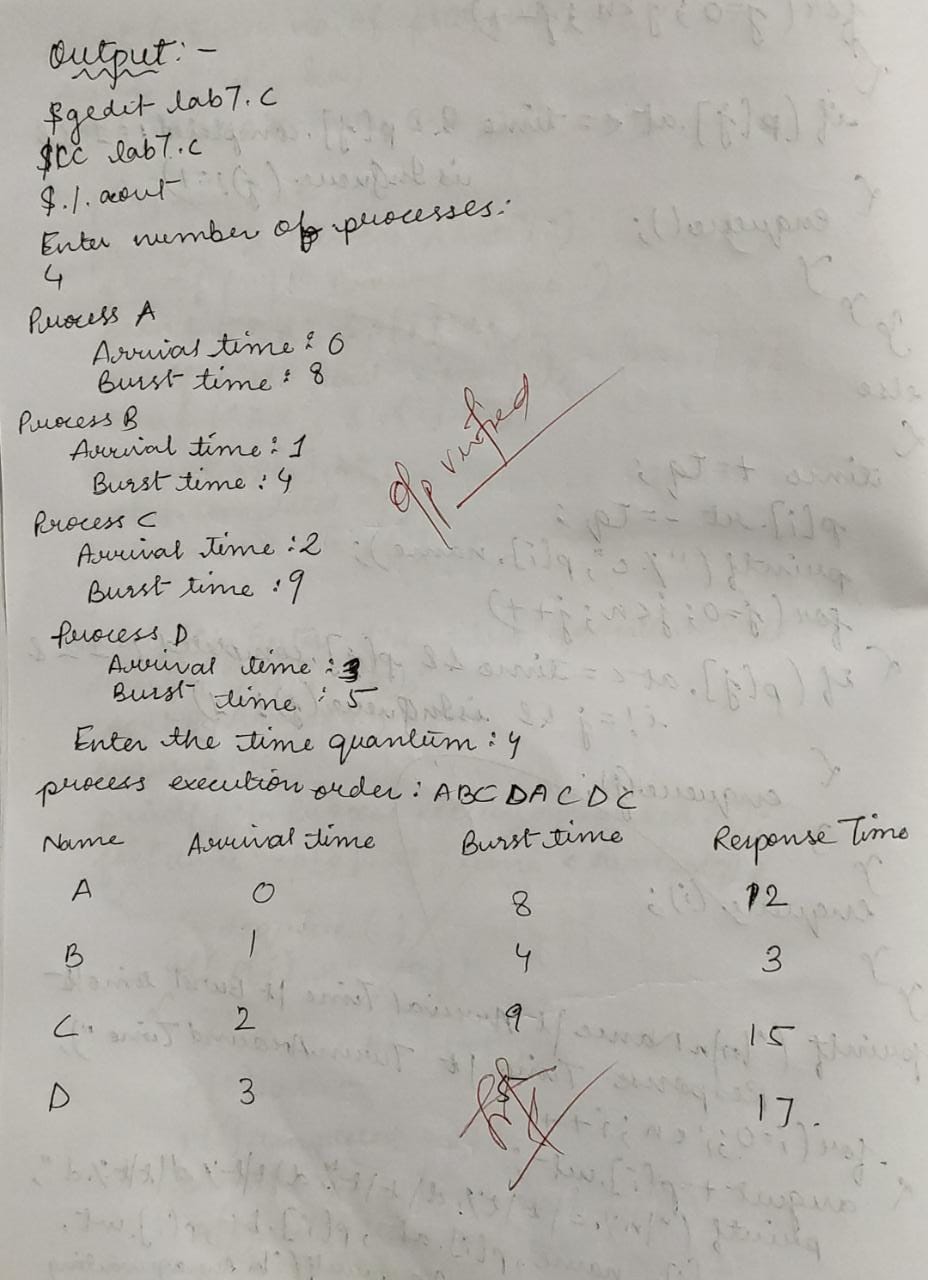 Output:-
$gedit lab7.c
$cc lab7.c
$./.aout
Enter number of processes:
4
Process A
Arrival time: 0
Burst time: 8
Process B
Arrival time: 1
Burst time: 4
Process C
Arrival time: 2
Burst time: 9
Process D
Arrival time: 3
Burst time: 5
O/p verified
Enter the time quantum: 4
process execution order: ABCDACDC
Name Arrival time Burst time Response Time
A 0 8 12
B 1 4 3
C 2 9 15
D 3 5 17.